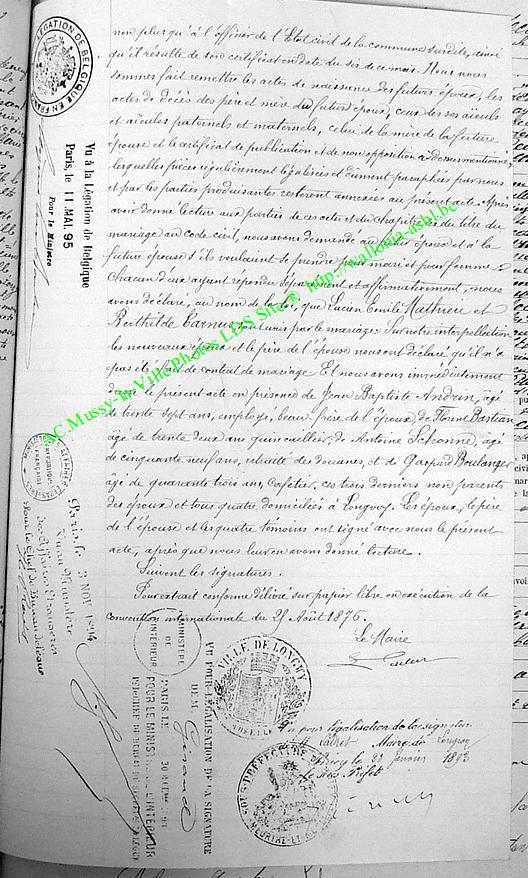 non plus qu'à l'officier de l'Etat civil de la commune susdite, ainsi
qu'il résulte de son certificat en date du six de ce mois. Nous nous
sommes fait remettre les actes de naissance des futurs époux, les
actes de décès des père et mère du futur époux, ceux des ses aïeuls
et aïeules paternels et maternels, celui de la mère de la future
épouse et le certificat de publication et de non opposition ci-dessus mentionné,
lesquelles pièces régulièrement légalisées et dûment paraphées par nous
et par les parties produisantes resteront annexées au présent acte. Après
avoir donné lecture aux parties de ces actes et du chapitre six du titre du
mariage au code civil, nous avons demandé au futur époux et à la
future épouse s'ils voulaient se prendre pour mari et pour femme
chacun d'eux ayant répondu séparément et affirmativement, nous
avons déclaré, au nom de la loi, que Lucien Emile Mathieu et
Berthilde Carnus sont unis par le mariage. Sur notre interpellation
les nouveaux époux et le père de l'épouse nous ont déclaré qu'il n'a
pas été fait de contrat de mariage. Et nous avons immédiatement
dressé le présent acte en présence de Jean Baptiste Andrin, âgé
de trente sept ans, employé, beau-frère de l'époux, de Bastian
âgé de trente deux ans quincaillier, de Antoine Schonne, âgé
de cinquante neuf ans, retraité des douanes, et de Gaspard Boulanger
âgé de quarante trois ans, Cafetier, ces trois derniers non parents
des époux et tous quatre domiciliés à Longwy. Les époux, le père
de l'épouse et les quatre témoins ont signé avec nous le présent
acte, après que nous leur en avons donné lecture.
Suivent les signatures.
Pour extrait conforme délivré sur papier libre en exécution de la
convention internationale du 25 Août 1876.
Le Maire
LÉGATION DE BELGIQUE EN FRANCE
Vu à la Légation de Belgique
Paris, le 11 MAI. 95
Pour le Ministre
AFFAIRES ETRANGERES
Paris, le 3 NOV 1894
des Affaires Etrangères
Pour le Chef de Bureau délégué
MINISTERE DE L'INTERIEUR
VU POUR LEGALISATION DE LA SIGNATURE
DE M. Girard
PARIS, LE 30
POUR LE MINISTRE DE L'INTERIEUR
VILLE DE LONGWY
Vu pour légalisation de la signature
Maire de Longwy
Briey le 28 Janvier 1893
Le Sous Préfet
SOUS-PRÉFECTURE
MEURTHE-ET-MOSELLE
AC.Mussy-la-Ville Photos LDS Site ® http://wallonia-asbl.be